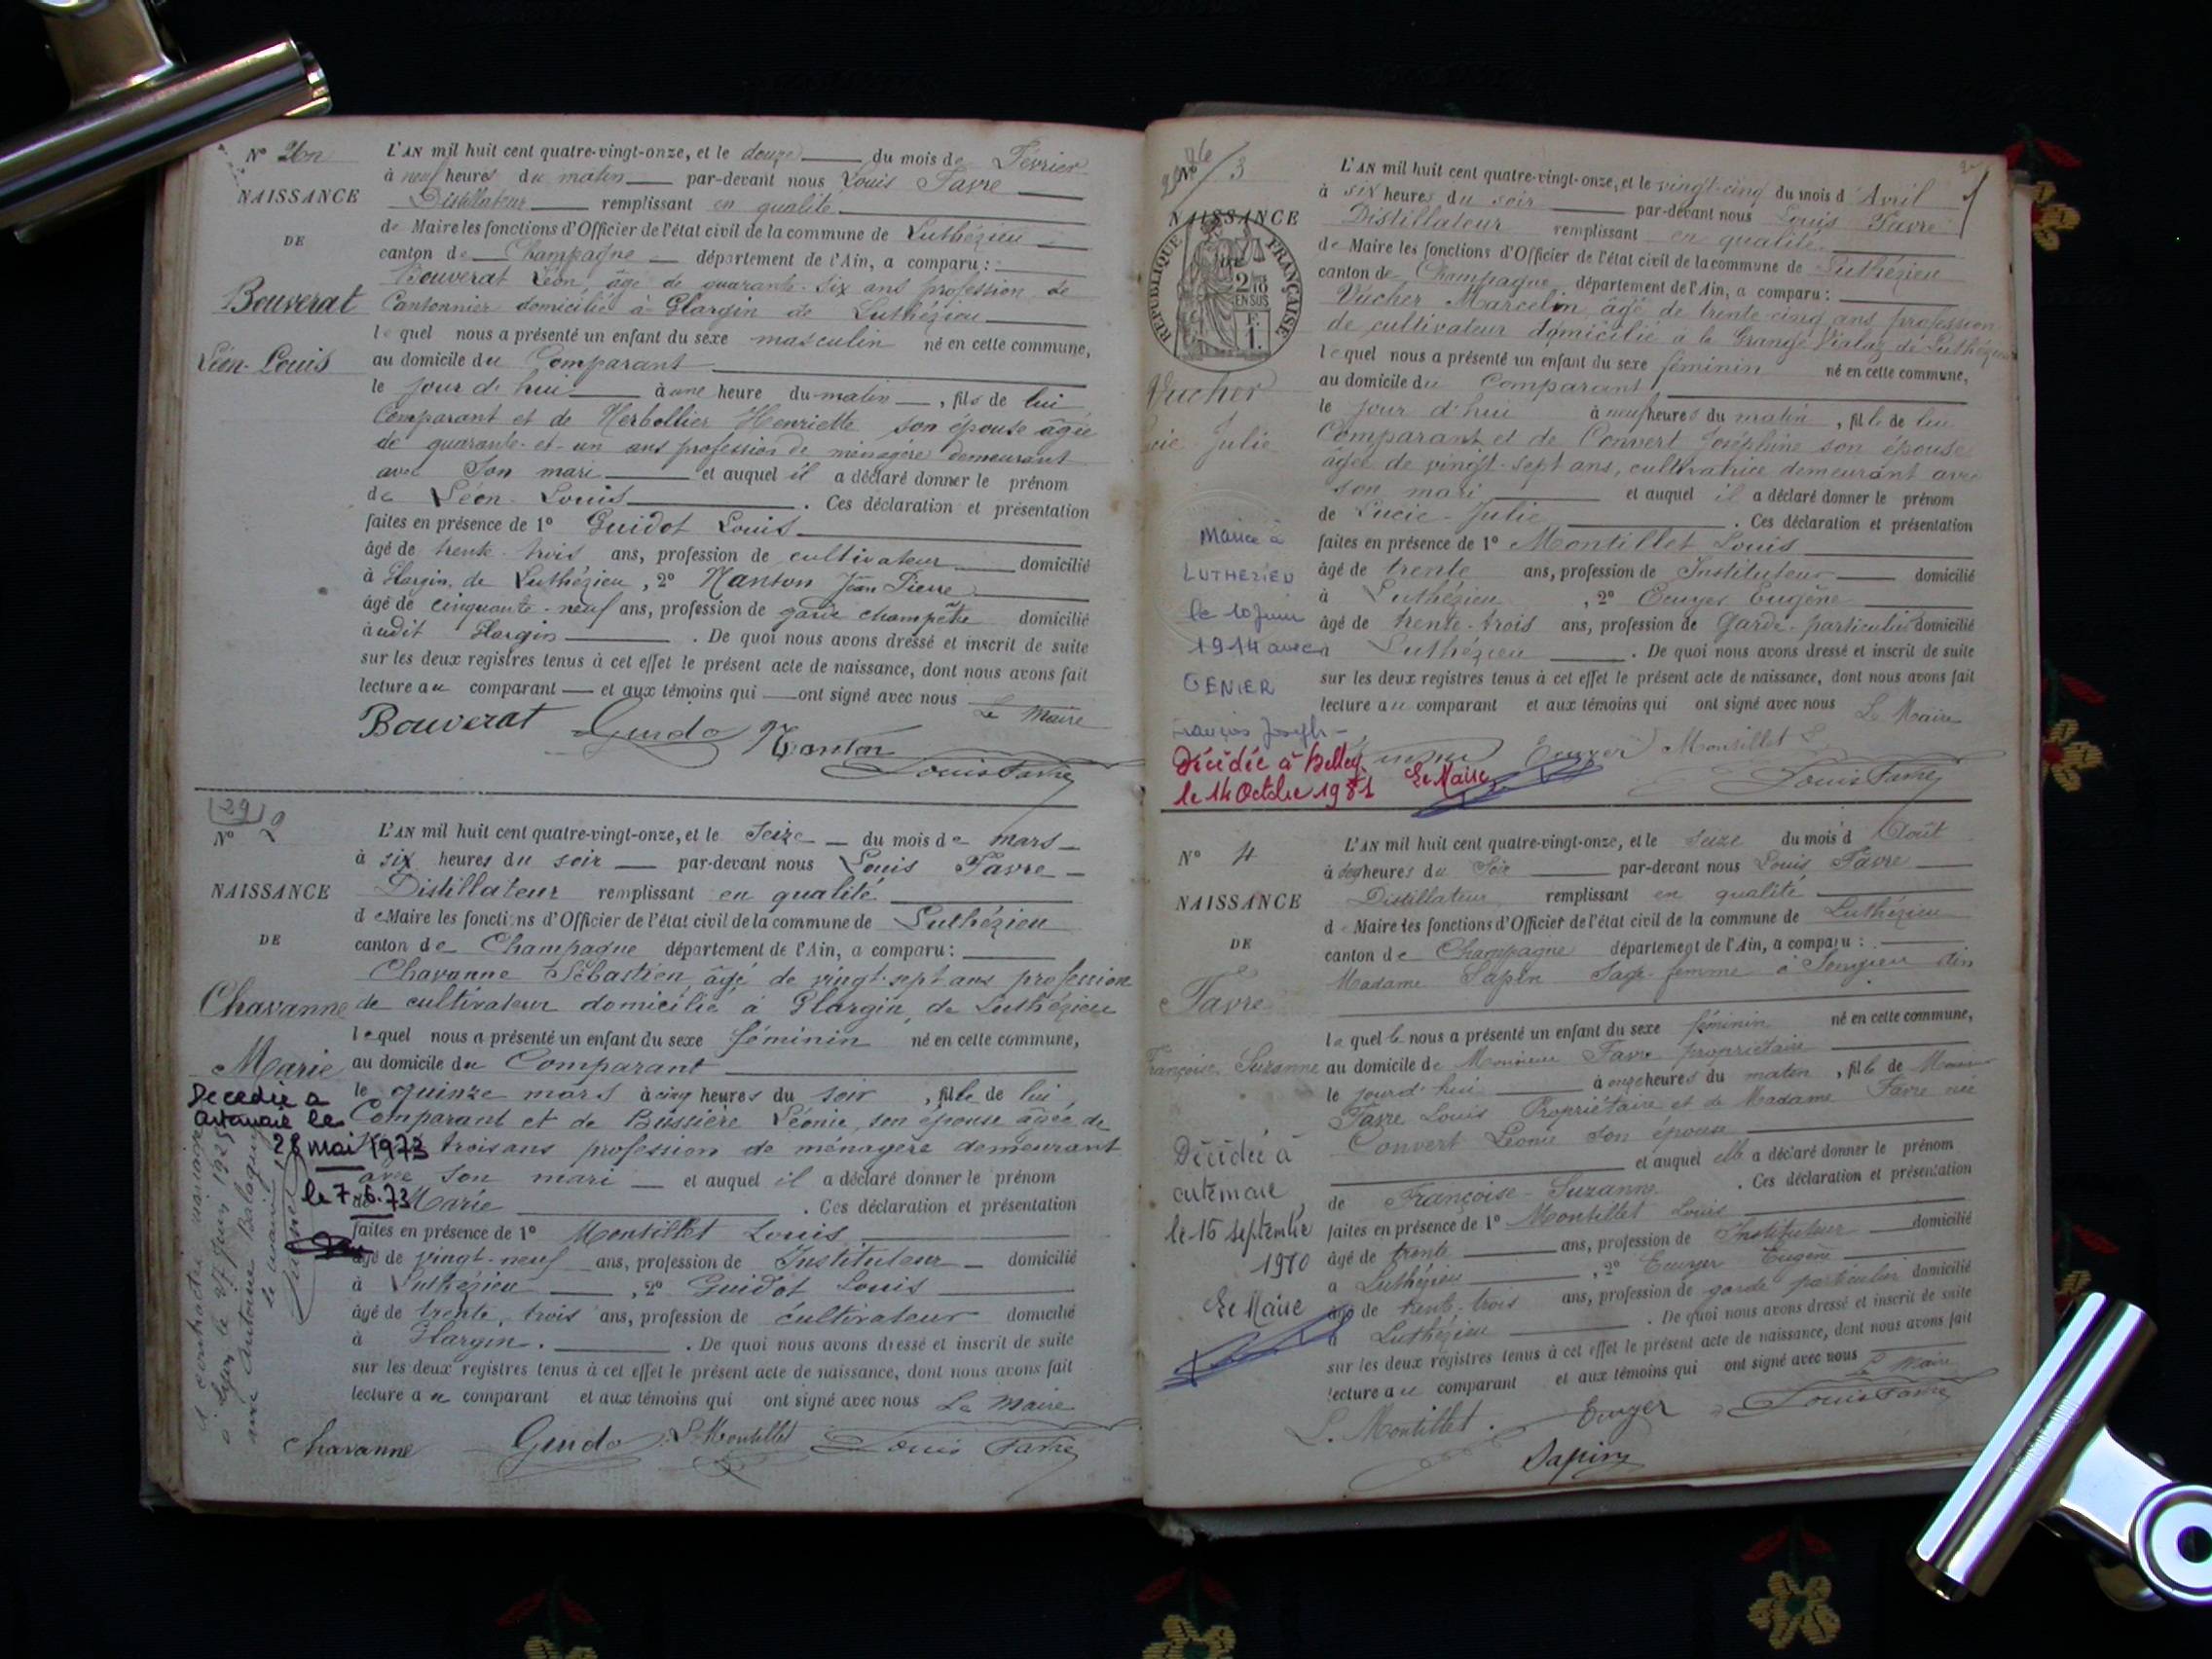 N°
NAISSANCE
DE
Bouverat
Léon-Louis
L'AN mil huit cent quatre-vingt-onze, et le douze du mois de Février
à neuf heures du matin par-devant nous Louis Favre
Distillateur remplissant en qualité
de Maire les fonctions d'Officier de l'état civil de la commune de Luthézieu
canton de Champagne département de l'Ain, a comparu :
Bouverat Léon, âgé de quarante-six ans profession de
Cantonnier domicilié à Glargin de Luthézieu
lequel nous a présenté un enfant du sexe masculin né en cette commune,
au domicile du Comparant
le jour d'hui à une heure du matin, fils de lui
Comparant et de Herbollier Henriette son épouse âgée
de quarante-et-un ans profession de ménagère demeurant
avec son mari et auquel il a déclaré donner le prénom
de Léon-Louis. Ces déclaration et présentation
faites en présence de 1° Guidot Louis
âgé de trente-trois ans, profession de cultivateur domicilié
à Glargin de Luthézieu, 2° Nanton Jean Pierre
âgé de cinquante-neuf ans, profession de garde champêtre domicilié
audit Glargin. De quoi nous avons dressé et inscrit de suite
sur les deux registres tenus à cet effet le présent acte de naissance, dont nous avons fait
lecture au comparant et aux témoins qui ont signé avec nous Le Maire
Bouverat Guido Nanton
Louis Favre
29
N°
NAISSANCE
DE
Chavanne
Marie
Décédée à
Artemare le
28 mai 1973
le 7.6.73
L'AN mil huit cent quatre-vingt-onze, et le seize du mois de mars
à six heures du soir par-devant nous Louis Favre
Distillateur remplissant en qualité
de Maire les fonctions d'Officier de l'état civil de la commune de Luthézieu
canton de Champagne département de l'Ain, a comparu :
Chavanne Sébastien, âgé de vingt-sept ans profession
de cultivateur domicilié à Glargin, de Luthézieu
lequel nous a présenté un enfant du sexe féminin né en cette commune,
au domicile du Comparant
le quinze mars à cinq heures du soir, fille de lui
Comparant et de Bussière Léonie, son épouse âgée de
trois ans profession de ménagère demeurant
avec son mari et auquel il a déclaré donner le prénom
de Marie. Ces déclaration et présentation
faites en présence de 1° Montillet Louis
âgé de vingt-neuf ans, profession de Instituteur domicilié
à Luthézieu, 2° Guidot Louis
âgé de trente, trois ans, profession de cultivateur domicilié
à Glargin. De quoi nous avons dressé et inscrit de suite
sur les deux registres tenus à cet effet le présent acte de naissance, dont nous avons fait
lecture au comparant et aux témoins qui ont signé avec nous Le Maire
Chavanne Guido L. Montillet Louis Favre
a contracté mariage
à Lyon le 27 Juin 1925
avec Antoine
N° 3
NAISSANCE
RÉPUBLIQUE FRANÇAISE
2/10 EN SUS
Vucher
Julie
Mariée à
LUTHEZIEU
le 10 juin
1914 avec
GENIER
François Joseph
Décédée à Belley
le 14 Octobre 1981
Le Maire
L'AN mil huit cent quatre-vingt-onze, et le vingt-cinq du mois d'Avril
à six heures du soir par-devant nous Louis Favre
Distillateur remplissant en qualité
de Maire les fonctions d'Officier de l'état civil de la commune de Luthézieu
canton de Champagne département de l'Ain, a comparu :
Vucher Marcelin âgé de trente-cinq ans profession
de cultivateur domicilié à la Grange de Luthézieu
lequel nous a présenté un enfant du sexe féminin né en cette commune,
au domicile du Comparant
le jour d'hui à neuf heures du matin, fille de lui
Comparant et de Convert Joséphine son épouse
âgée de vingt-sept ans, cultivatrice demeurant avec
son mari et auquel il a déclaré donner le prénom
de Lucie-Julie. Ces déclaration et présentation
faites en présence de 1° Montillet Louis
âgé de trente ans, profession de Instituteur domicilié
à Luthézieu, 2° Ecuyer Eugène
âgé de trente-trois ans, profession de Garde-particulier domicilié
à Luthézieu. De quoi nous avons dressé et inscrit de suite
sur les deux registres tenus à cet effet le présent acte de naissance, dont nous avons fait
lecture au comparant et aux témoins qui ont signé avec nous Le Maire
Ecuyer Montillet L
Louis Favre
N° 4
NAISSANCE
DE
Favre
Françoise Suzanne
Décédée à
artemare
le 15 septembre
1980
Le Maire
L'AN mil huit cent quatre-vingt-onze, et le seize du mois d'Août
à heures du Soir par-devant nous Louis Favre
Distillateur remplissant en qualité
de Maire les fonctions d'Officier de l'état civil de la commune de Luthézieu
canton de Champagne département de l'Ain, a comparu :
Madame Sapin Sage-femme à Songieu
laquelle nous a présenté un enfant du sexe féminin né en cette commune,
au domicile de Monsieur Favre propriétaire
le jour d'hui à onze heures du matin, fille de Monsieur
Favre Louis Propriétaire et de Madame Favre née
Convert Léonie son épouse
et auquel elle a déclaré donner le prénom
de Françoise-Suzanne. Ces déclaration et présentation
faites en présence de 1° Montillet Louis
âgé de trente ans, profession de Instituteur domicilié
à Luthézieu, 2° Ecuyer Eugène
âgé de trente-trois ans, profession de garde particulier domicilié
à Luthézieu. De quoi nous avons dressé et inscrit de suite
sur les deux registres tenus à cet effet le présent acte de naissance, dont nous avons fait
lecture au comparant et aux témoins qui ont signé avec nous Le Maire
L. Montillet. Ecuyer Louis Favre
Sapin